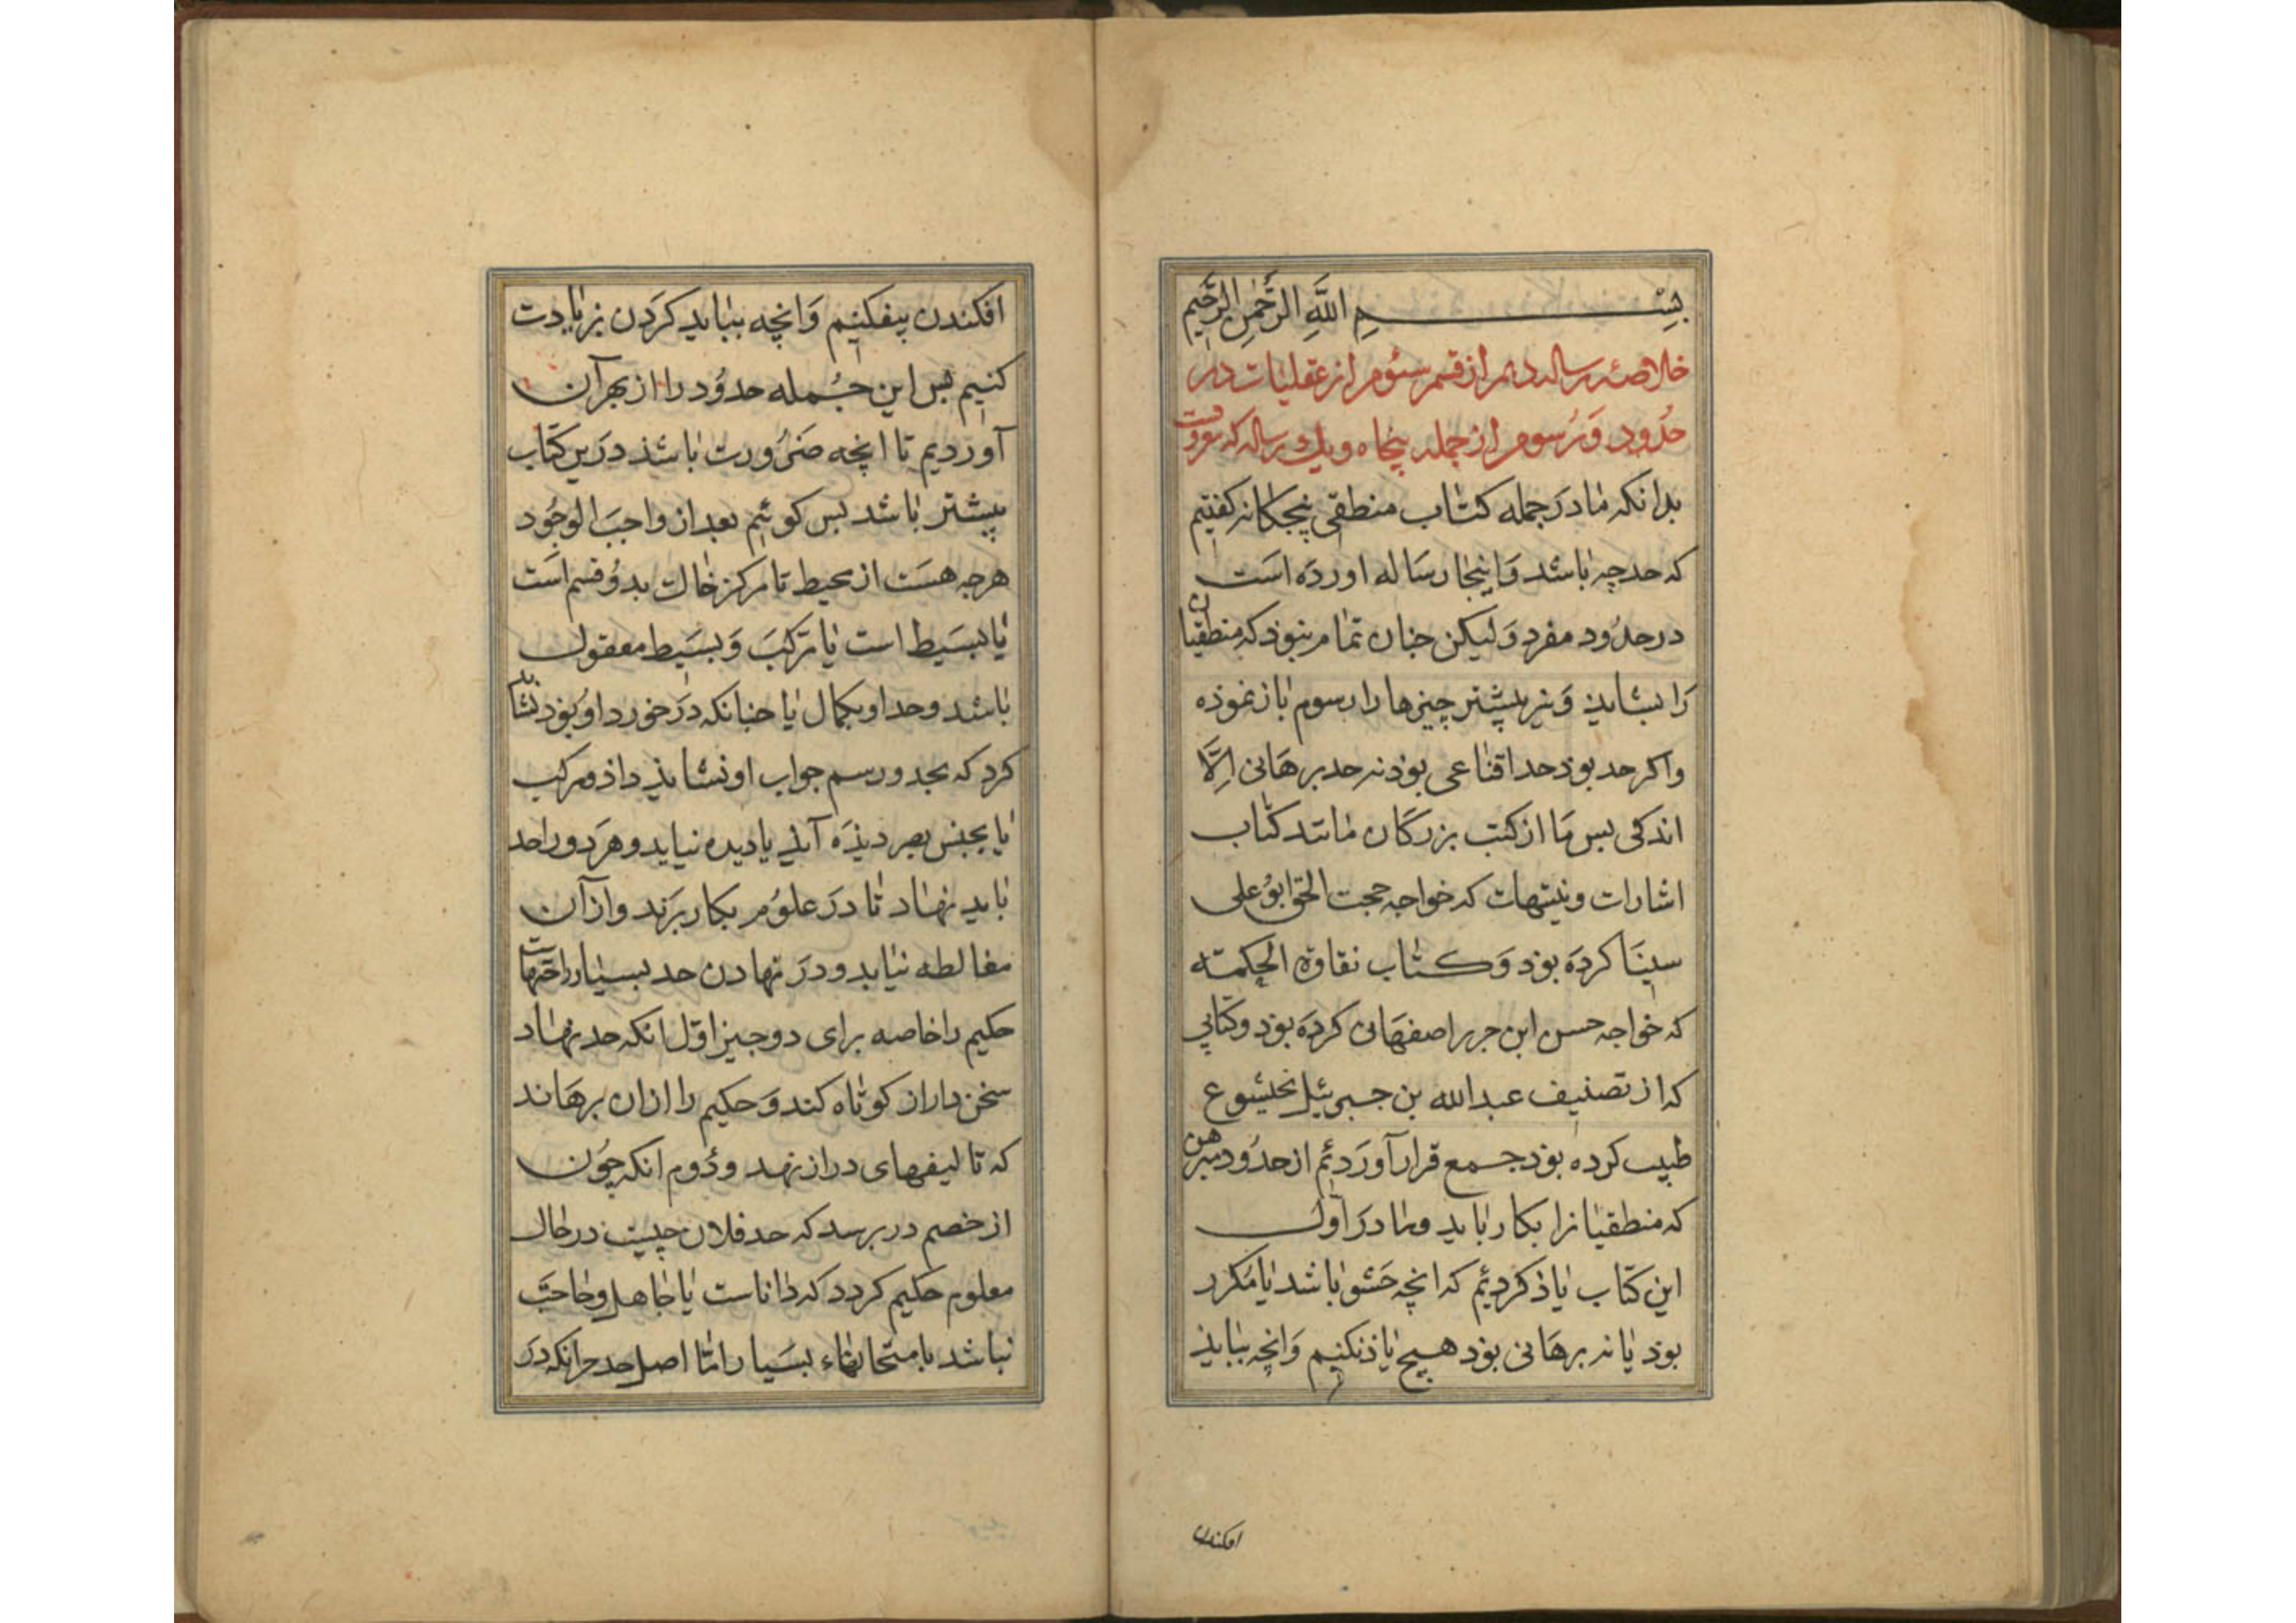 بِسْمِ اللَّهِ الرَّحْمٰنِ الرَّحِيمِ
خلاصهٔ رساله دهم از قسم سئوم از عقلیات در
حُدُود وَ رُسوم از جمله پنجاه و یک رساله که معروفست
بدانکه ما درَ جمله کتاب منطقی پنجکانه کفتیم
که حد چه باشد وَ اینجا رسَاله اوردَه اسَت
در حدُود مفرد وَلیکن جنان تمام نبوذ که منطقیان
رَا بشاید وَ نیز بیشتر چیزها را رسوم باز نموذه
واکر حد بوذ حد اقناعی بوذ نه حد برهَانی اِلَّا
اندکی بس مَا از کتب بزرکَان مانند کتاب
اشارات و تنبیهات که خواجه حجت الحق ابوُ علی
سینَا کردَه بوَد وَ کتاب نقاوة الحِکمته
که خواجه حسن ابن جریر اصفهَانی کردَه بوذ و کتابی
که از تصنیف عبدالله بن جبرئیل بخیشوع
طبیب کرده بوذ جمع قرار آورَدئم از حدُود مبرهن
که منطقیانرا بکار باید و ما درَ اول
این کتاب یاذ کردیم که انچه حَشو باشد یا مُکرر
بوذ یا نه برهَانی بوذ هیچ یاذ نکنیم وَ انچه بباید
افکندن
افکندن بیفکنیم وَ انچه بباید کرَدن زیادت
کنیم بس این جُمله حدوُد را از بهر آن
آوردیم تا انچه ضَرُورت باشذ درَین کتاب
بیشتر باشد بس کوئیم بعد از واجبَ الوجُود
هرجه هسَت از محیط تا مرکز خاک بدوُ قسم اسَت
یا بسَیط است یا مرَکبَ وَ بسَیط معقول
باشد و حد او بکمال یا جنانکه درَ خورد اوُ بوَذ نشاید
کرد که بحد و رسم جواب او نشایذ داذ و مرکب
یا بجنس بصر دیذَه آید یا دیده نیاید و هرَ دو را حد
باید نهاد تا درَ علوُم بکار برَند و از آن
مغالطه نیاید و درَ نهادن حد بسیار راحتهاست
حکیم را خاصه برای دو جیز اوّل انکه حد نهاد
سخن دراز کوتاه کند وَ حکیم را ازان برهَاند
که تالیفهای دراز نهد و دُوم انکه چوُن
از خصم در برسد که حد فلان چیست در حال
معلوم حکیم کردد که داناست یا جاهل و حاجتَ
نباشد بامتحانهاء بسَیار امّا اصل حد جزانکه درَ